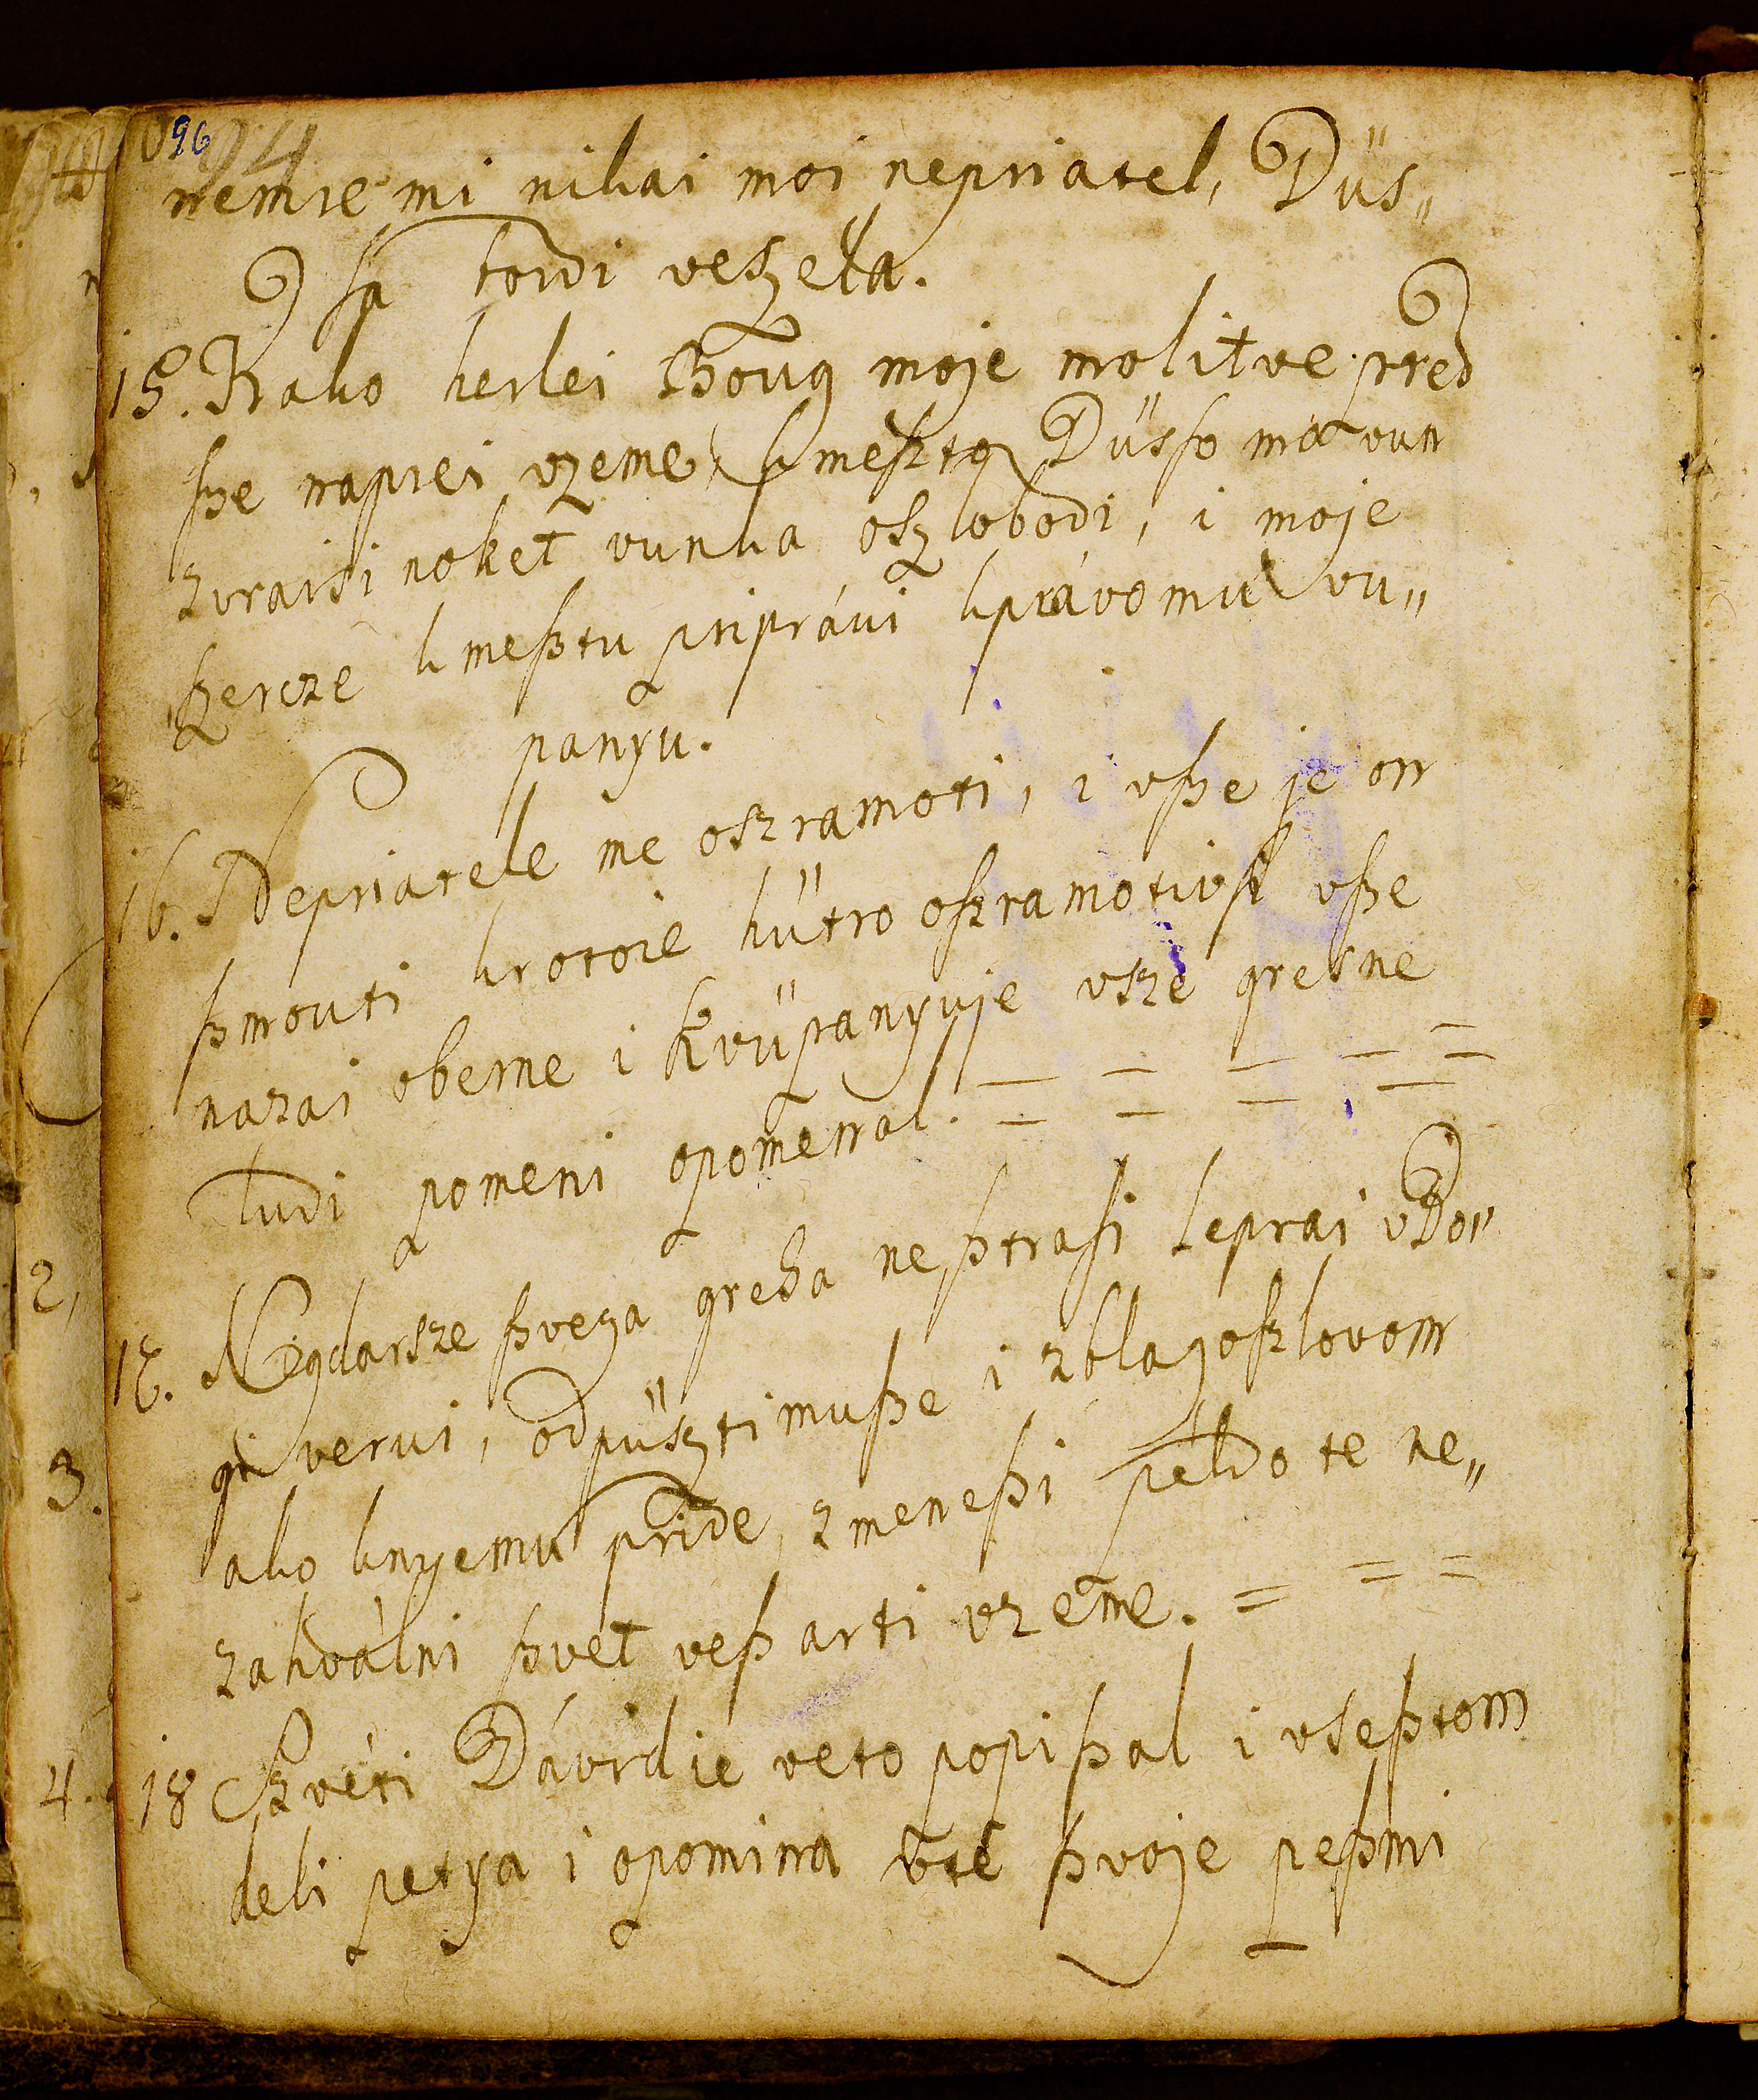 96
94
nemre mi nikai moi nepriatel, Düs„
ſa tordi veſzela.
15. Kako herlei Boug moje molitve pred
ſze naprei vzeme, kmeſzto Düsſo mo vun
zvraisi noket vunka oſzlobodi, i moje
ſzercze kmeſztu priprávi kprávomu vu„
panyu.
16. Nepriatele me oszramoti, i vſze je on
ſzmouti krotoie hütro oſzramotivſi vſze
nazai oberne i kvüpanyuje vsze gresne
ludi pomeni opomenal. = = = = =
17. Negdarsze ſzvega greha neſztraſi leprai vBo„
gi verui, odpüſztimuſze i zblagoſzlovom
ako knyemu pride, zmeneſzi peldo te ne„
zahválni ſzvet veſz arti vzeme. = = =
18 Szvéti Dávid ie veto popiſzal i vseſztom
deli petya i opomina vte ſzvoje peſzmi
2,
3.
4.